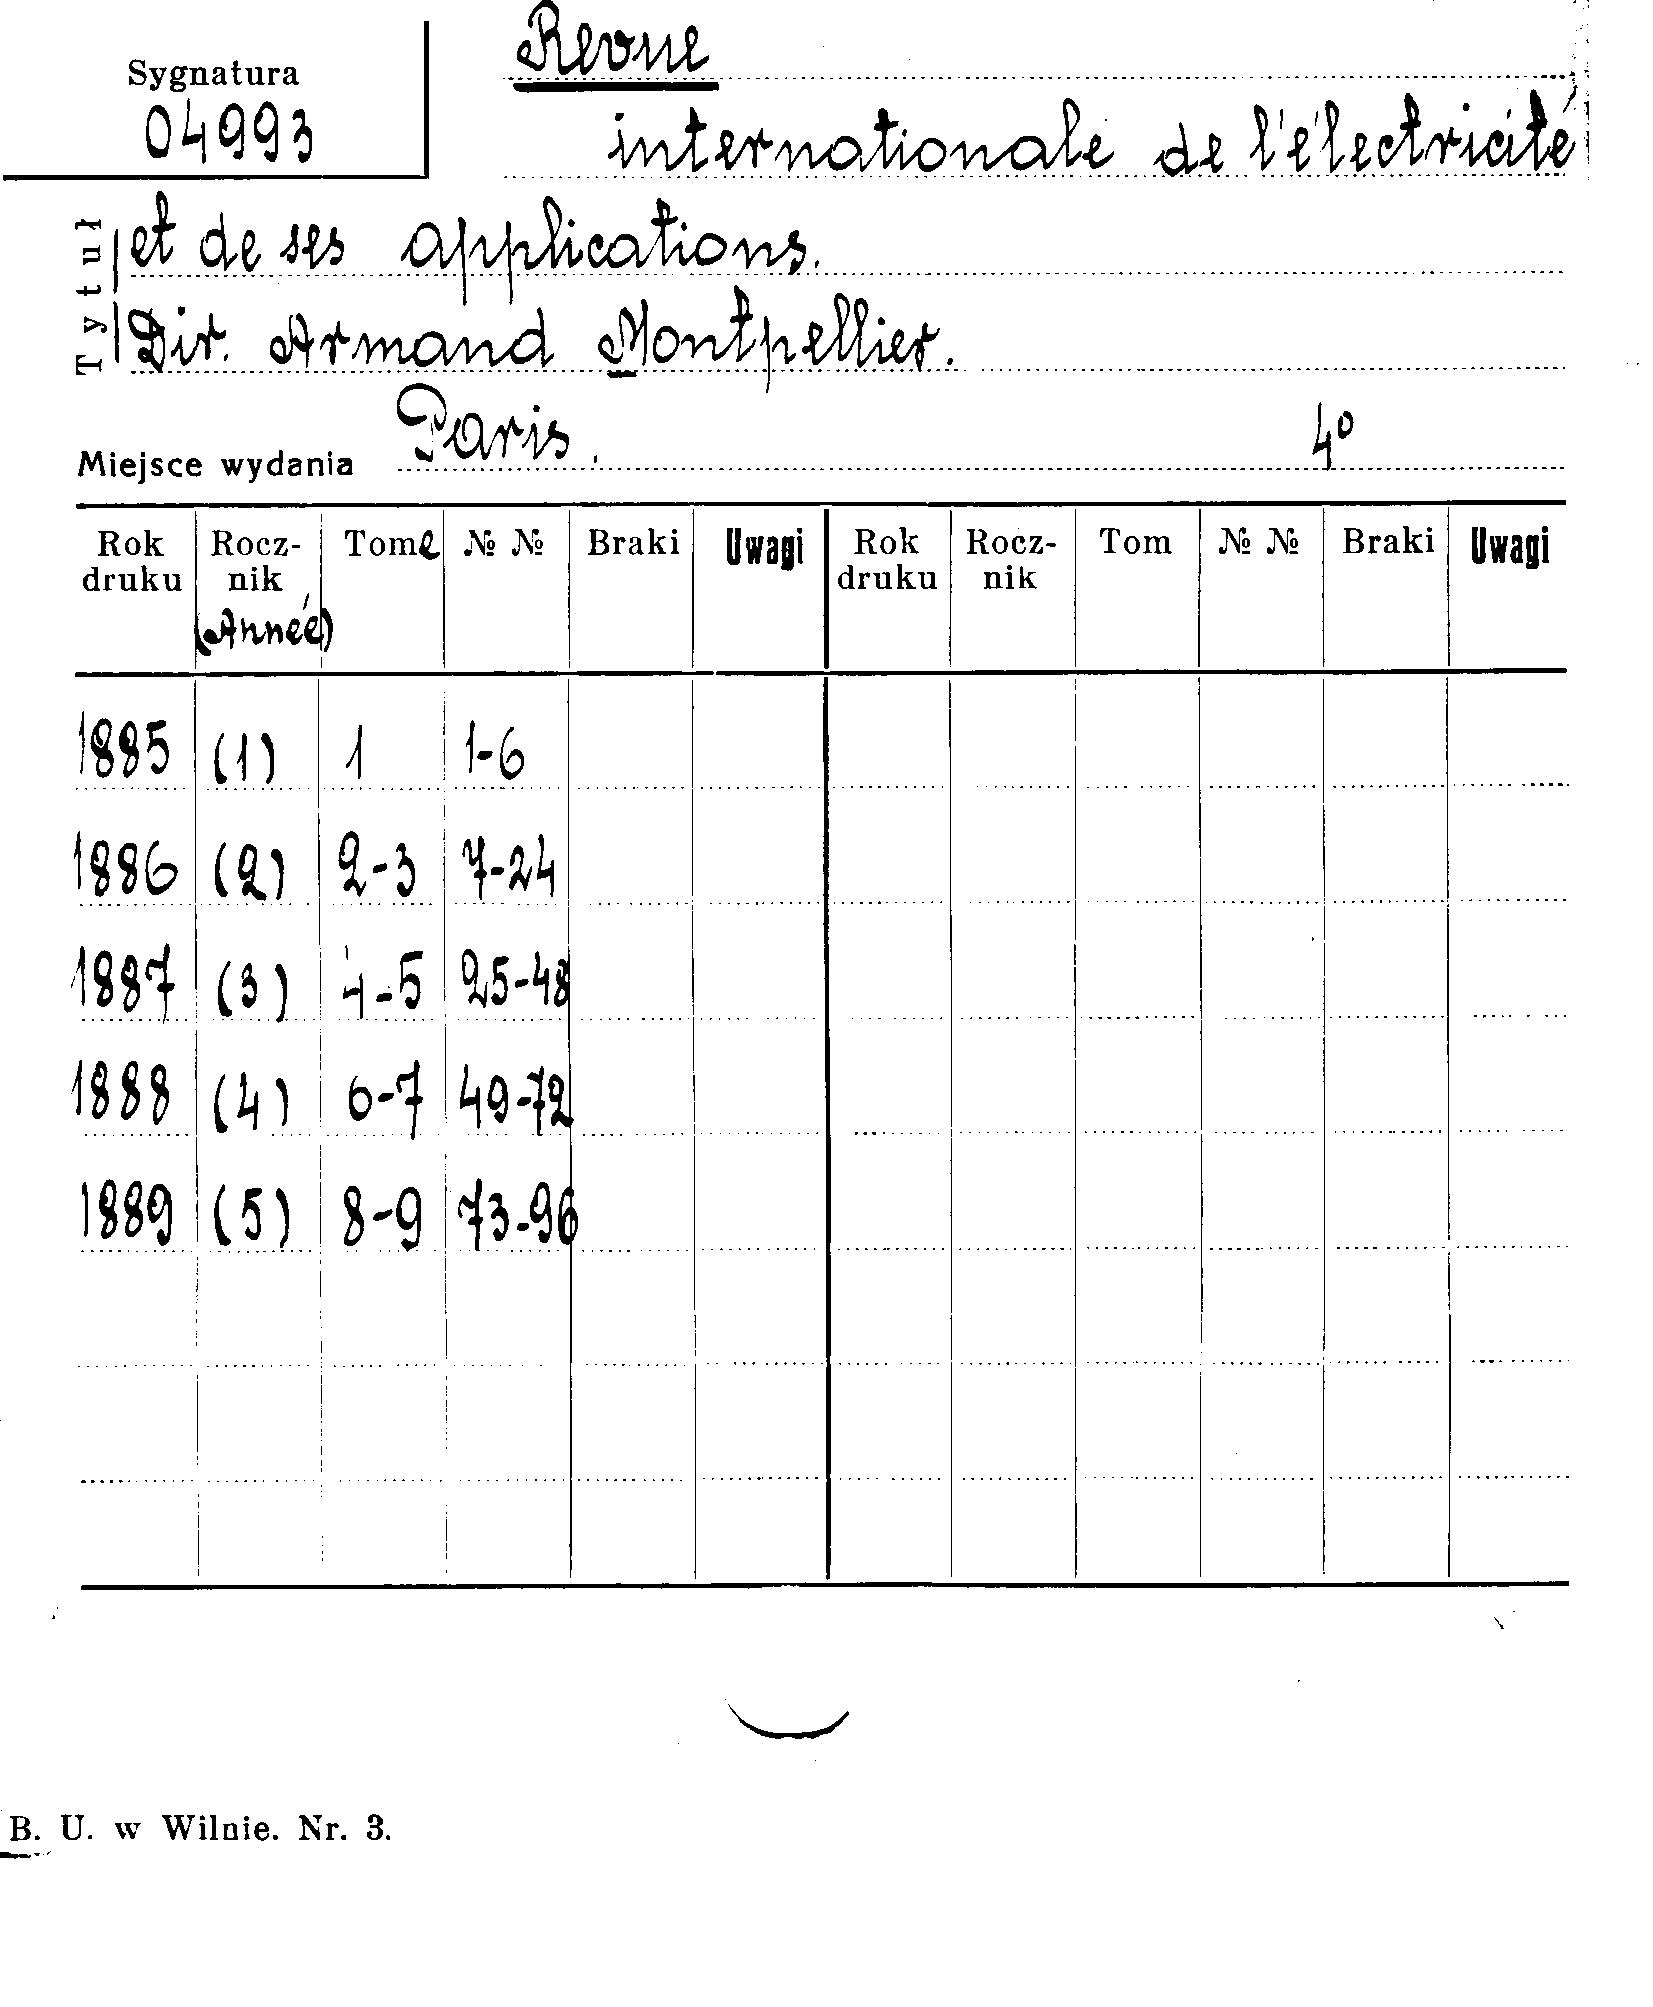 Sygnatura
04993
Revue
internationale de l'électricité
Tytuł
et de ses applications.
Dir. Armand Montpellier.
Miejsce wydania Paris. 4º
Rok druku Rocz-nik (Année) Tome № № Braki Uwagi Rok druku Rocz-nik Tom № № Braki Uwagi
1885 (1) 1 1-6
1886 (2) 2-3 7-24
1887 (3) 4-5 25-48
1888 (4) 6-7 49-72
1889 (5) 8-9 73-96
B. U. w Wilnie. Nr. 3.